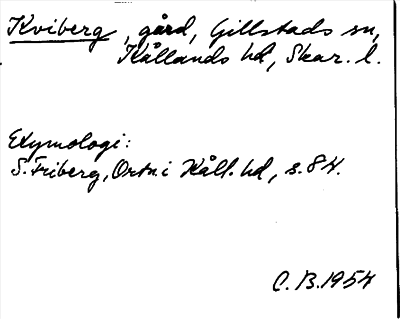 Kviberg, gård, Gillstads sn,
Kållands hd, Skar. l.
Etymologi:
S. Friberg, Ortn. i Kåll. hd, s. 84.
C. B. 1954